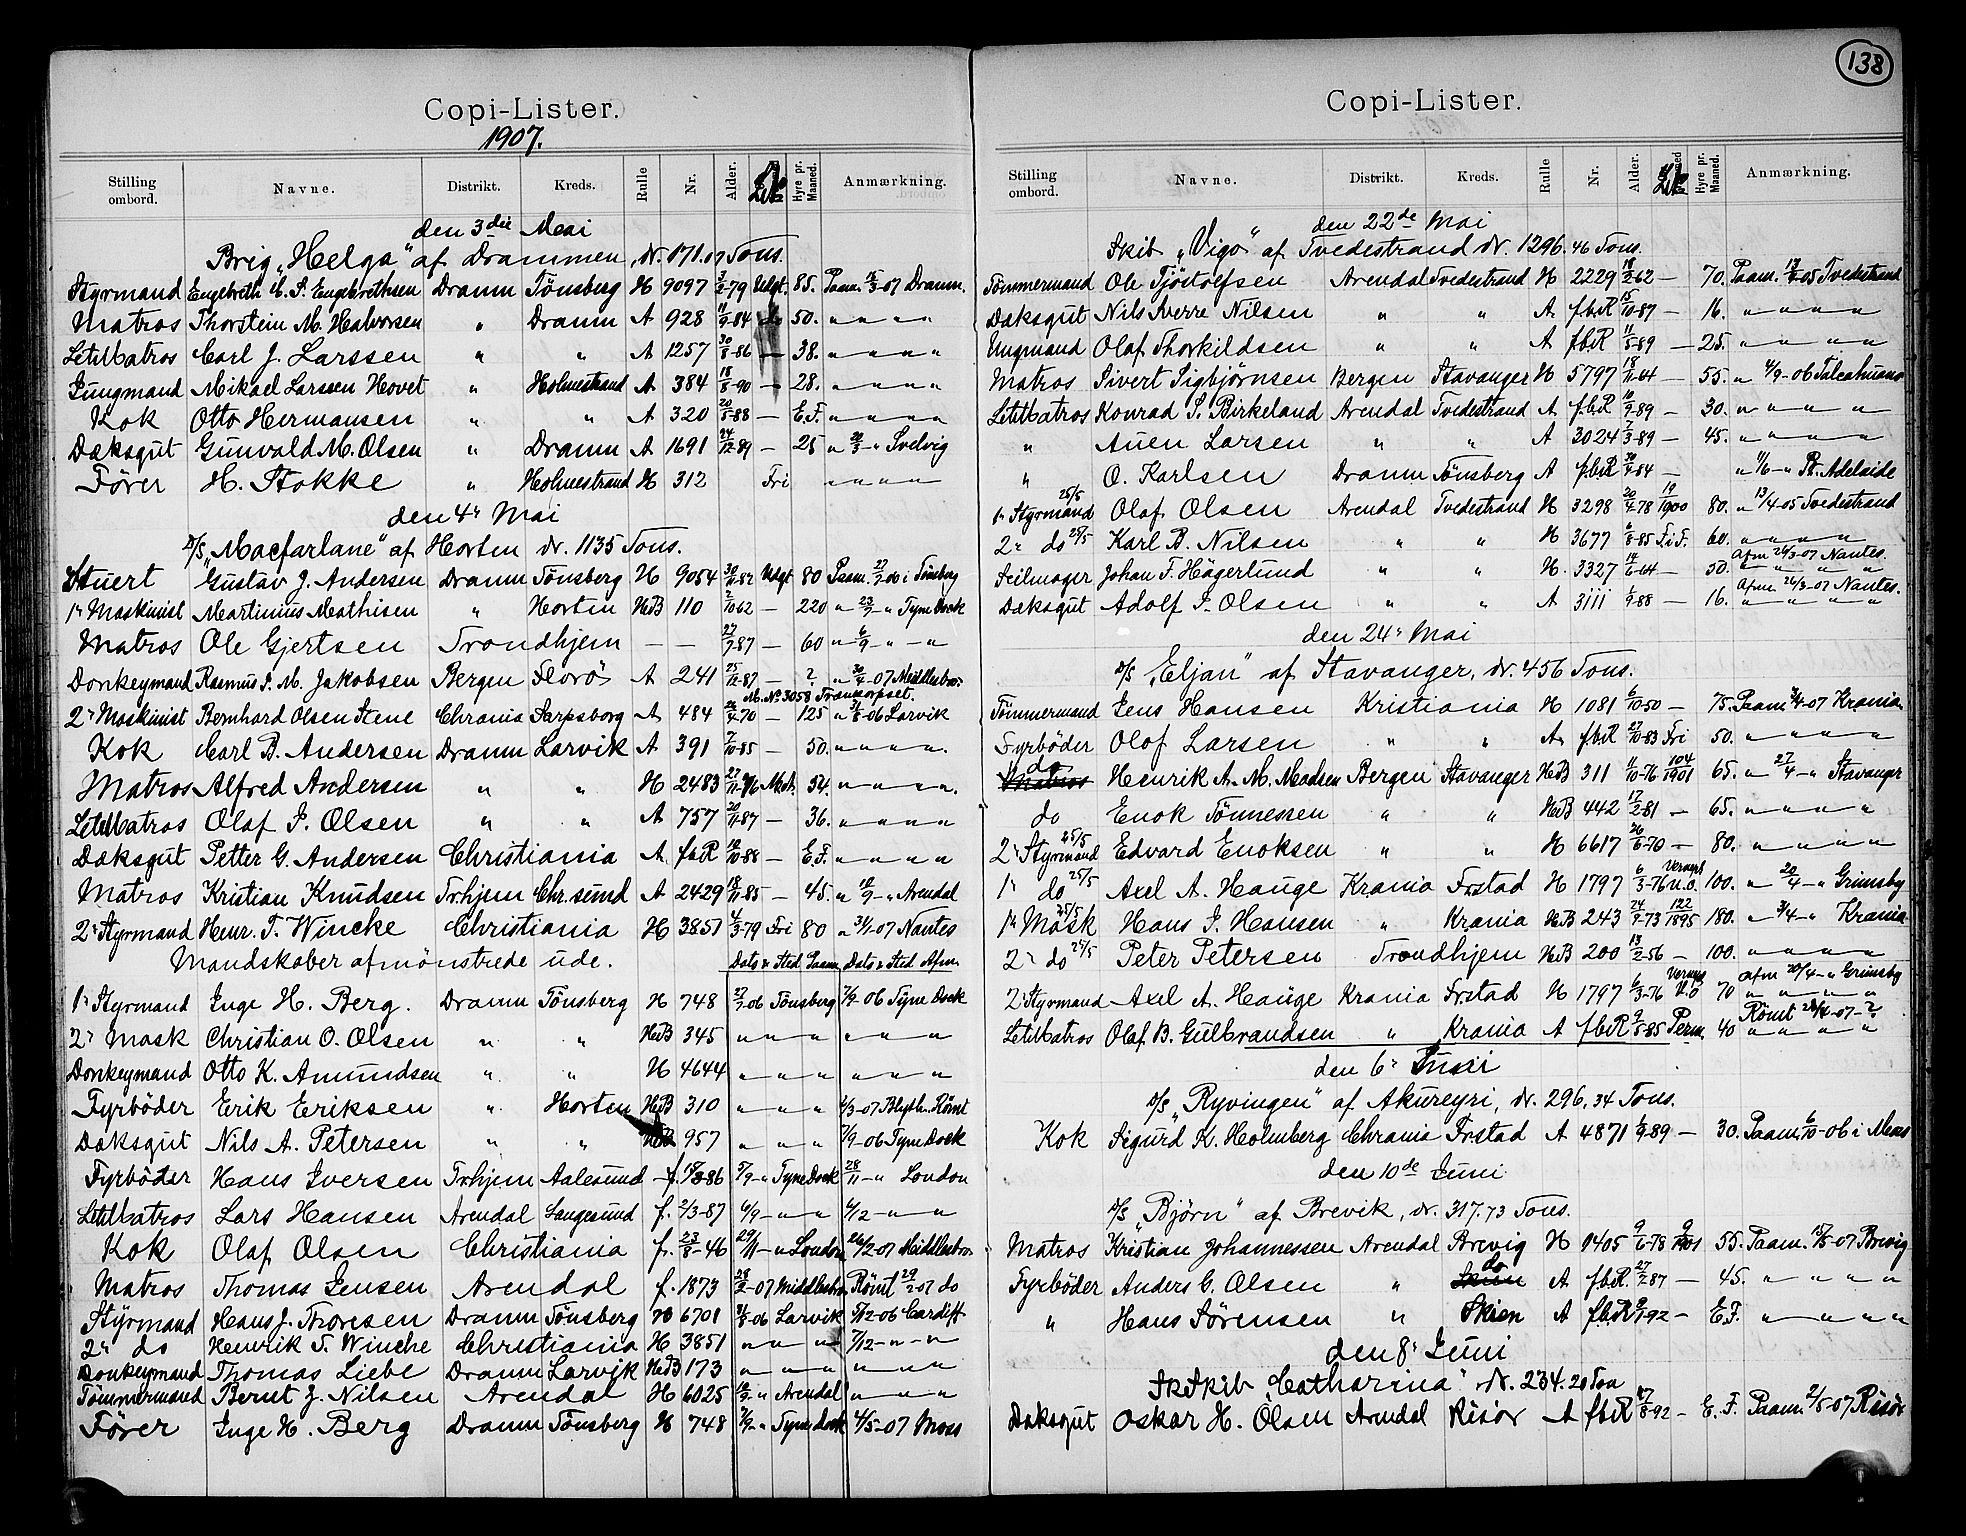 138
Copi-Lister.
1907.
Stilling ombord. Navne. Distrikt. Kreds. Rulle Nr. Alder. Hyre pr. Maaned. Anmærkning.
den 3die Mai
Brig „Helga“ af Drammen, dr. 171.07 Tons.
Styrmand Engebreth C. S. Engebrethsen Dramn Tönsberg H 9097 3/2-79 Udgt. 85. Paam. 15/3-07 Dramn.
Matros Thorstein M. Halvorsen " Dramn A 928 11/9-84 do 50. " " " "
LetMatros Carl J. Larssen " " A 1257 30/8-86 — 38. " " " "
Jungmand Mikael Larssen Hovet " Holmestrand A 384 18/8-90 — 28. " " " "
Kok Otto Hermansen " " A 320 20/5-88 — E.F. " " " "
Dæksgut Gunvald M. Olsen " Dramn A 1691 24/12-89 — 25 " 20/3-" Svelvig
Förer H. Stokke " Holmestrand H 312 Fri " " " "
den 4r Mai
D/S „Macfarlane“ af Horten dr. 1135 Tons.
Stuert Gustav J. Andersen Dramn Tönsberg H 9054 30/11-82 Udgt 80 Paam. 27/7-06 i Tönsberg
1r Maskinist Martinius Mathisen " Horten HdB 110 2/10-62 — 220 " 23/7-" Tyne Dock
Matros Ole Gjertsen Trondhjem — — 27/7-87 — 60 " 6/9-" - "
Donkeymand Rasmus S. M. Jakobsen Bergen Florö A 241 25/12-87 — ? " 30/4-07 Middlesbro.
M. No 3058 Francorpset.
2r Maskinist Bernhard Olsen Stene Chrania Sarpsborg A 484 26/4-70 — 125 " 31/8-06 Larvik
Kok Carl B. Andersen Dramn Larvik A 391 7/10-85 — 50. " " " "
Matros Alfred Andersen " " H 2483 27/11-76 54. " " " "
LetMatros Olaf I. Olsen " " A 757 20/11-87 — 36. " " " "
Dæksgut Petter G. Andersen Christiania A fbiR 12/10-88 — E.F. " " " "
Matros Kristian Knudsen Trhjem Chr.sund A 2429 18/11-85 — 45. " 10/9-" Arendal
2r Styrmand Henr. T. Wincke Christiania H 3851 4/3-79 Fri 80 " 31/1-07 Nantes
Mandskaber afmönstrede ude. Dato & Sted Paam. Dato & Sted Afm.
1r Styrmand Inge H. Berg. Dramn Tönsberg H 748 27/7-06 Tönsberg 7/9-06 Tyne Dock
2r Mask Christian O. Olsen " " HdB 345 " " " " " "
Donkeymand Otto K. Amundsen " " H 4644 " " " " " "
Fyrböder Erik Eriksen " Horten HdB 310 " " " 6/3-07 Blyth. Römt
Dæksgut Nils A. Petersen " " 957 " " " 7/9-06 Tyne Dock
Fyrböder Hans Iversen Trhjem Aalesund f. 15/3-86 5/9-" Tyne Dock 28/11-" London
LetMatros Lars Hansen Arendal Langesund f. 2/3-87 6/9-" " 6/12-" "
Kok Olaf Olsen Christiania f. 23/8-46 29/11-" London 26/2-07 Middlesbro.
Matros Thomas Jensen Arendal f. 1873 28/2-07 Middlesbro. Römt 29/2-07 do
Styrmand Hans J. Thoresen Dramn Tönsberg H 6701 31/8-06 Larvik 5/12-06 Cardiff
2r do Henrik T. Winche Christiania H 3851 " " " 7/12-" "
Donkeymand Thomas Liebe Dramn Larvik HdB 173 " " " " " "
Tömmermand Bernt J. Nilsen Arendal H 6025 10/9-" Arendal " " "
Förer Inge H. Berg Dramn Tönsberg H 748 7/9-" Tyne Dock 4/5-07 Moss
Copi-Lister.
Stilling ombord. Navne. Distrikt. Kreds. Rulle Nr. Alder. Hyre pr. Maaned. Anmærkning.
den 22de Mai
Skib „Vigo“ af Tvedestrand dr. 1296.46 Tons.
Tömmermand Ole Tjöstolfsen Arendal Tvedestrand H 2229 18/2-62 — 70. Paam. 13/4-05 Tvedestrand
Dæksgut Nils Sverre Nilsen " " A fbiR 15/10-87 — 16. " " " "
Ungmand Olaf Thorkildsen " " A fbiR 11/5-89 — 25. " " " "
Matros Sivert Sigbjörnsen Bergen Stavanger H 5797 18/11-64 — 55. " 4/9-06 Talcahuano
LetMatros Konrad S. Birkeland Arendal Tvedestrand A fbiR 10/9-89 — 30. " " " "
" Auen Larsen " " A 3024 7/3-89 — 45. " " " "
" O. Karlsen Dramn Tönsberg A fbiR 30/9-84 — " 1/6-" Pt. Adelaide
1r Styrmand 25/5 Olaf Olsen Arendal Tvedestrand H 3298 20/4-78 19/1900 80. " 13/4-05 Tvedestrand
2r do 25/5 Karl B. Nilsen " " H 3677 6/8-85 Fri. 60. " " " "
Seilmager Johan F. Hägerlund " " H. 3327 14/6-64 — 50. Afm 26/3-07 Nantes.
Dæksgut Adolf I. Olsen " " A 3111 6/9-88 — 16. Afm. 26/3-07 Nantes.
den 24r Mai
D/S „Eljan“ af Stavanger, dr. 456 Tons.
Tömmermand Jens Hansen Kristiania H 1081 6/10-50 — 75. Paam 3/4-07 Krania
Fyrböder Olof Larsen " " A fbiR 27/10-83 Fri 50. " " " "
do Henrik A. M. Madsen Bergen Stavanger HdB 311 11/10-76 104/1901 65. " 27/4-" Stavanger
do Enok Tönnessen " " HdB 442 17/2-81 — 65. " " " "
2r Styrmand 25/5 Edvard Enoksen " " H 6617 26/6-70 — 80. " " " "
1r do 25/5 Axel A. Hauge Krania Frstad H 1797 6/3-76 100. " 20/4-" Grimsby
1r Mask 25/5 Hans J. Hansen " Krania HdB 243 24/9-73 122/1895 180. " 3/4-" Krania
2r do 25/5 Peter Petersen Trondhjem HdB 200 13/2-56 — 100. " " " "
2r Styrmand Axel A. Hauge Krania Frstad H 1797 6/3-76 70 Afm 20/4-" Grimsby
LetMatros Olaf B. Gulbrandsen " Krania A fbiR 9/5-85 Perm. 40 Römt 28/4-07-?
den 6r Juni
D/S „Ryvingen“ af Akureyri, dr. 296,34 Tons.
Kok Sigurd K. Holmberg Chrania Frstad A 4871 6/9-89 — 30. Paam. 6/10-06 i Moss
den 10de Juni
D/S „Björn“ af Brevik, dr. 317.73 Tons.
Matros Kristian Johannessen Arendal Brevig H 1405 9/6-78 9/1901 55. Paam. 15/5-07 Brevig
Fyrböder Anders G. Olsen " do A fbiR. 27/2-87 — 45. " " " "
" Hans Sörensen " Skien A fbiR 9/1-92 — E.F. " " " "
den 8r Juni
SkSkib „Catharina“ dr. 234.20 Tons
Dæksgut Oskar H. Olsen Arendal Risör A fbiR 27/8-92 — E.F. Paam. 2/5-07 Risör